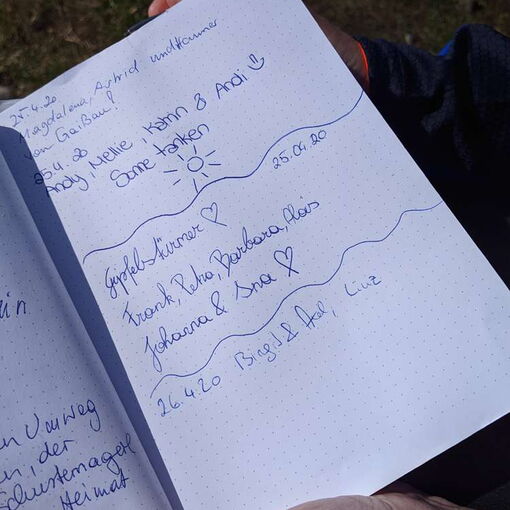 25.4.20
Magdalena, Astrid und Hannes
von Gaißau!
25.4.20
Andy, Nellie, Katrin & Andi
Sonne tanken
25.04.20
Gipfelstürmer
Frank, Petra, Barbara, Alois
Johanna & Ina
26.4.20 Birgit & Axel, Linz
in
n Umweg
n, der
Schusternagerl
Heimat